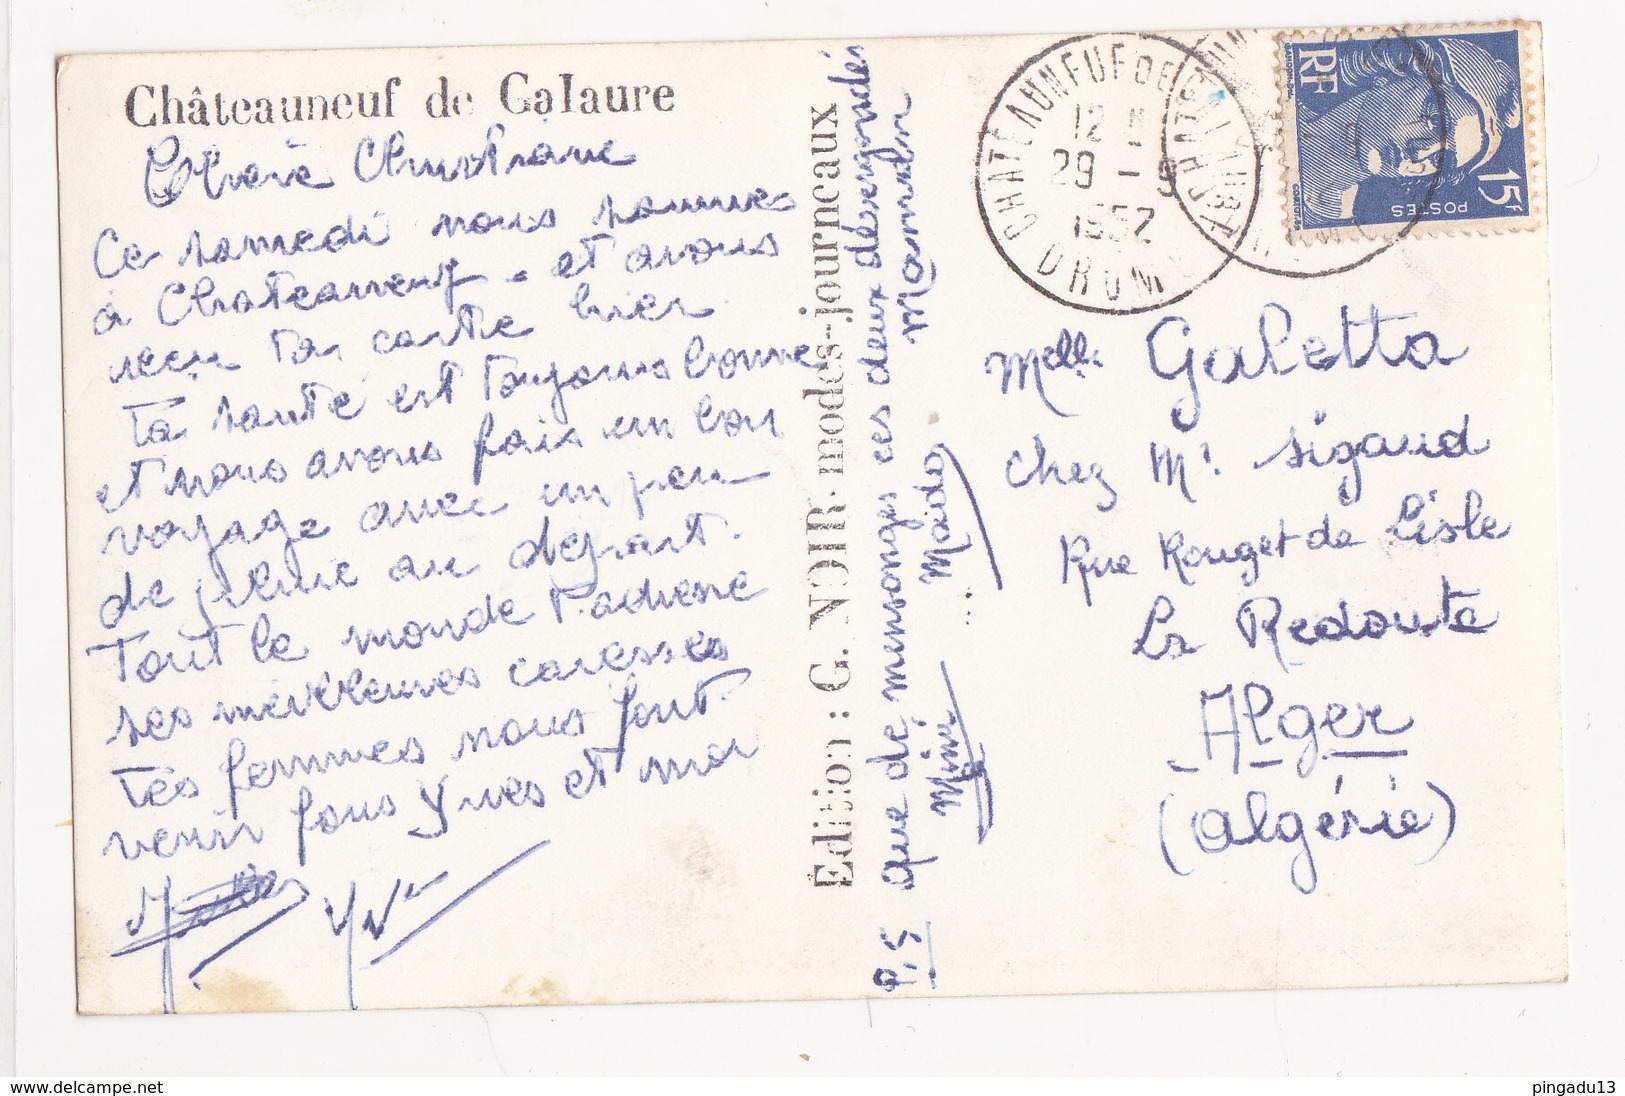 Châteauneuf de Galaure
Chère Christiane
Ce samedi nous sommes
à Chateauneuf - et avons
reçu ta carte hier
Ta santé est toujours bonne
et nous avons fais un bon
voyage avec un peu
de peine au départ.
Tout le monde t'adresse
ses meilleures caresses
Tes femmes nous font
venir fous Yves et moi
Yv
Edition : G. NOIR-modes-journeaux
P.S que de mensonges ces deux dévergondés
Mimi ... Maido
Maman
CHATEAUNEUF DE GALAURE
12
29 - 9
1952
DROME
RF
POSTES
15f
Melle Galetta
chez Mr Sigaud
Rue Rouget de Lisle
La Redoute
Alger
(Algérie)
www.delcampe.net
pingadu13